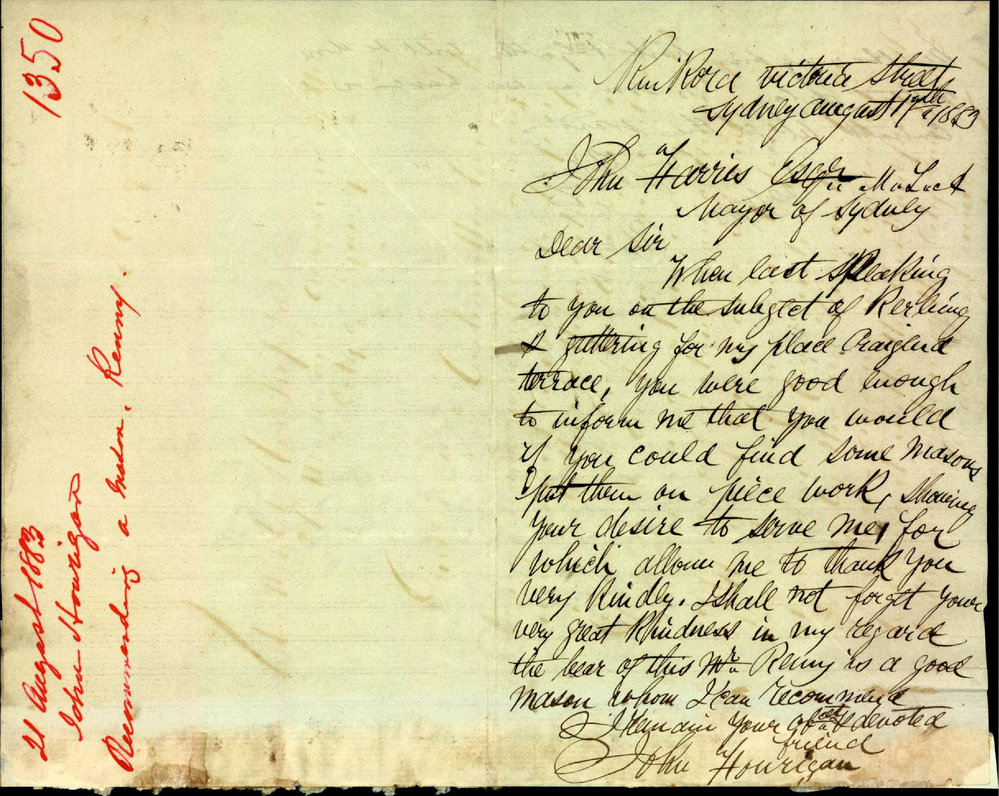 1350
21 August 1883
John Hourigan
Recommending a mason. Kenny.
victoria street
Sydney august 17th 1883
John Harries Esqr M.L.A
Mayor of Sydney
Dear Sir
When last speaking
to you on the subject of Kerbing
& guttering for my place Craigend
terrace, you were good enough
to inform me that you would
if you could find some masons
put them on piece work, showing
your desire to serve me, for
which allow me to thank you
very kindly. I shall not forget your
very great kindness in my regard
the bear of this Mr Kenny is a good
mason whom I can recommend
I remain your devoted
friend
John Hourigan